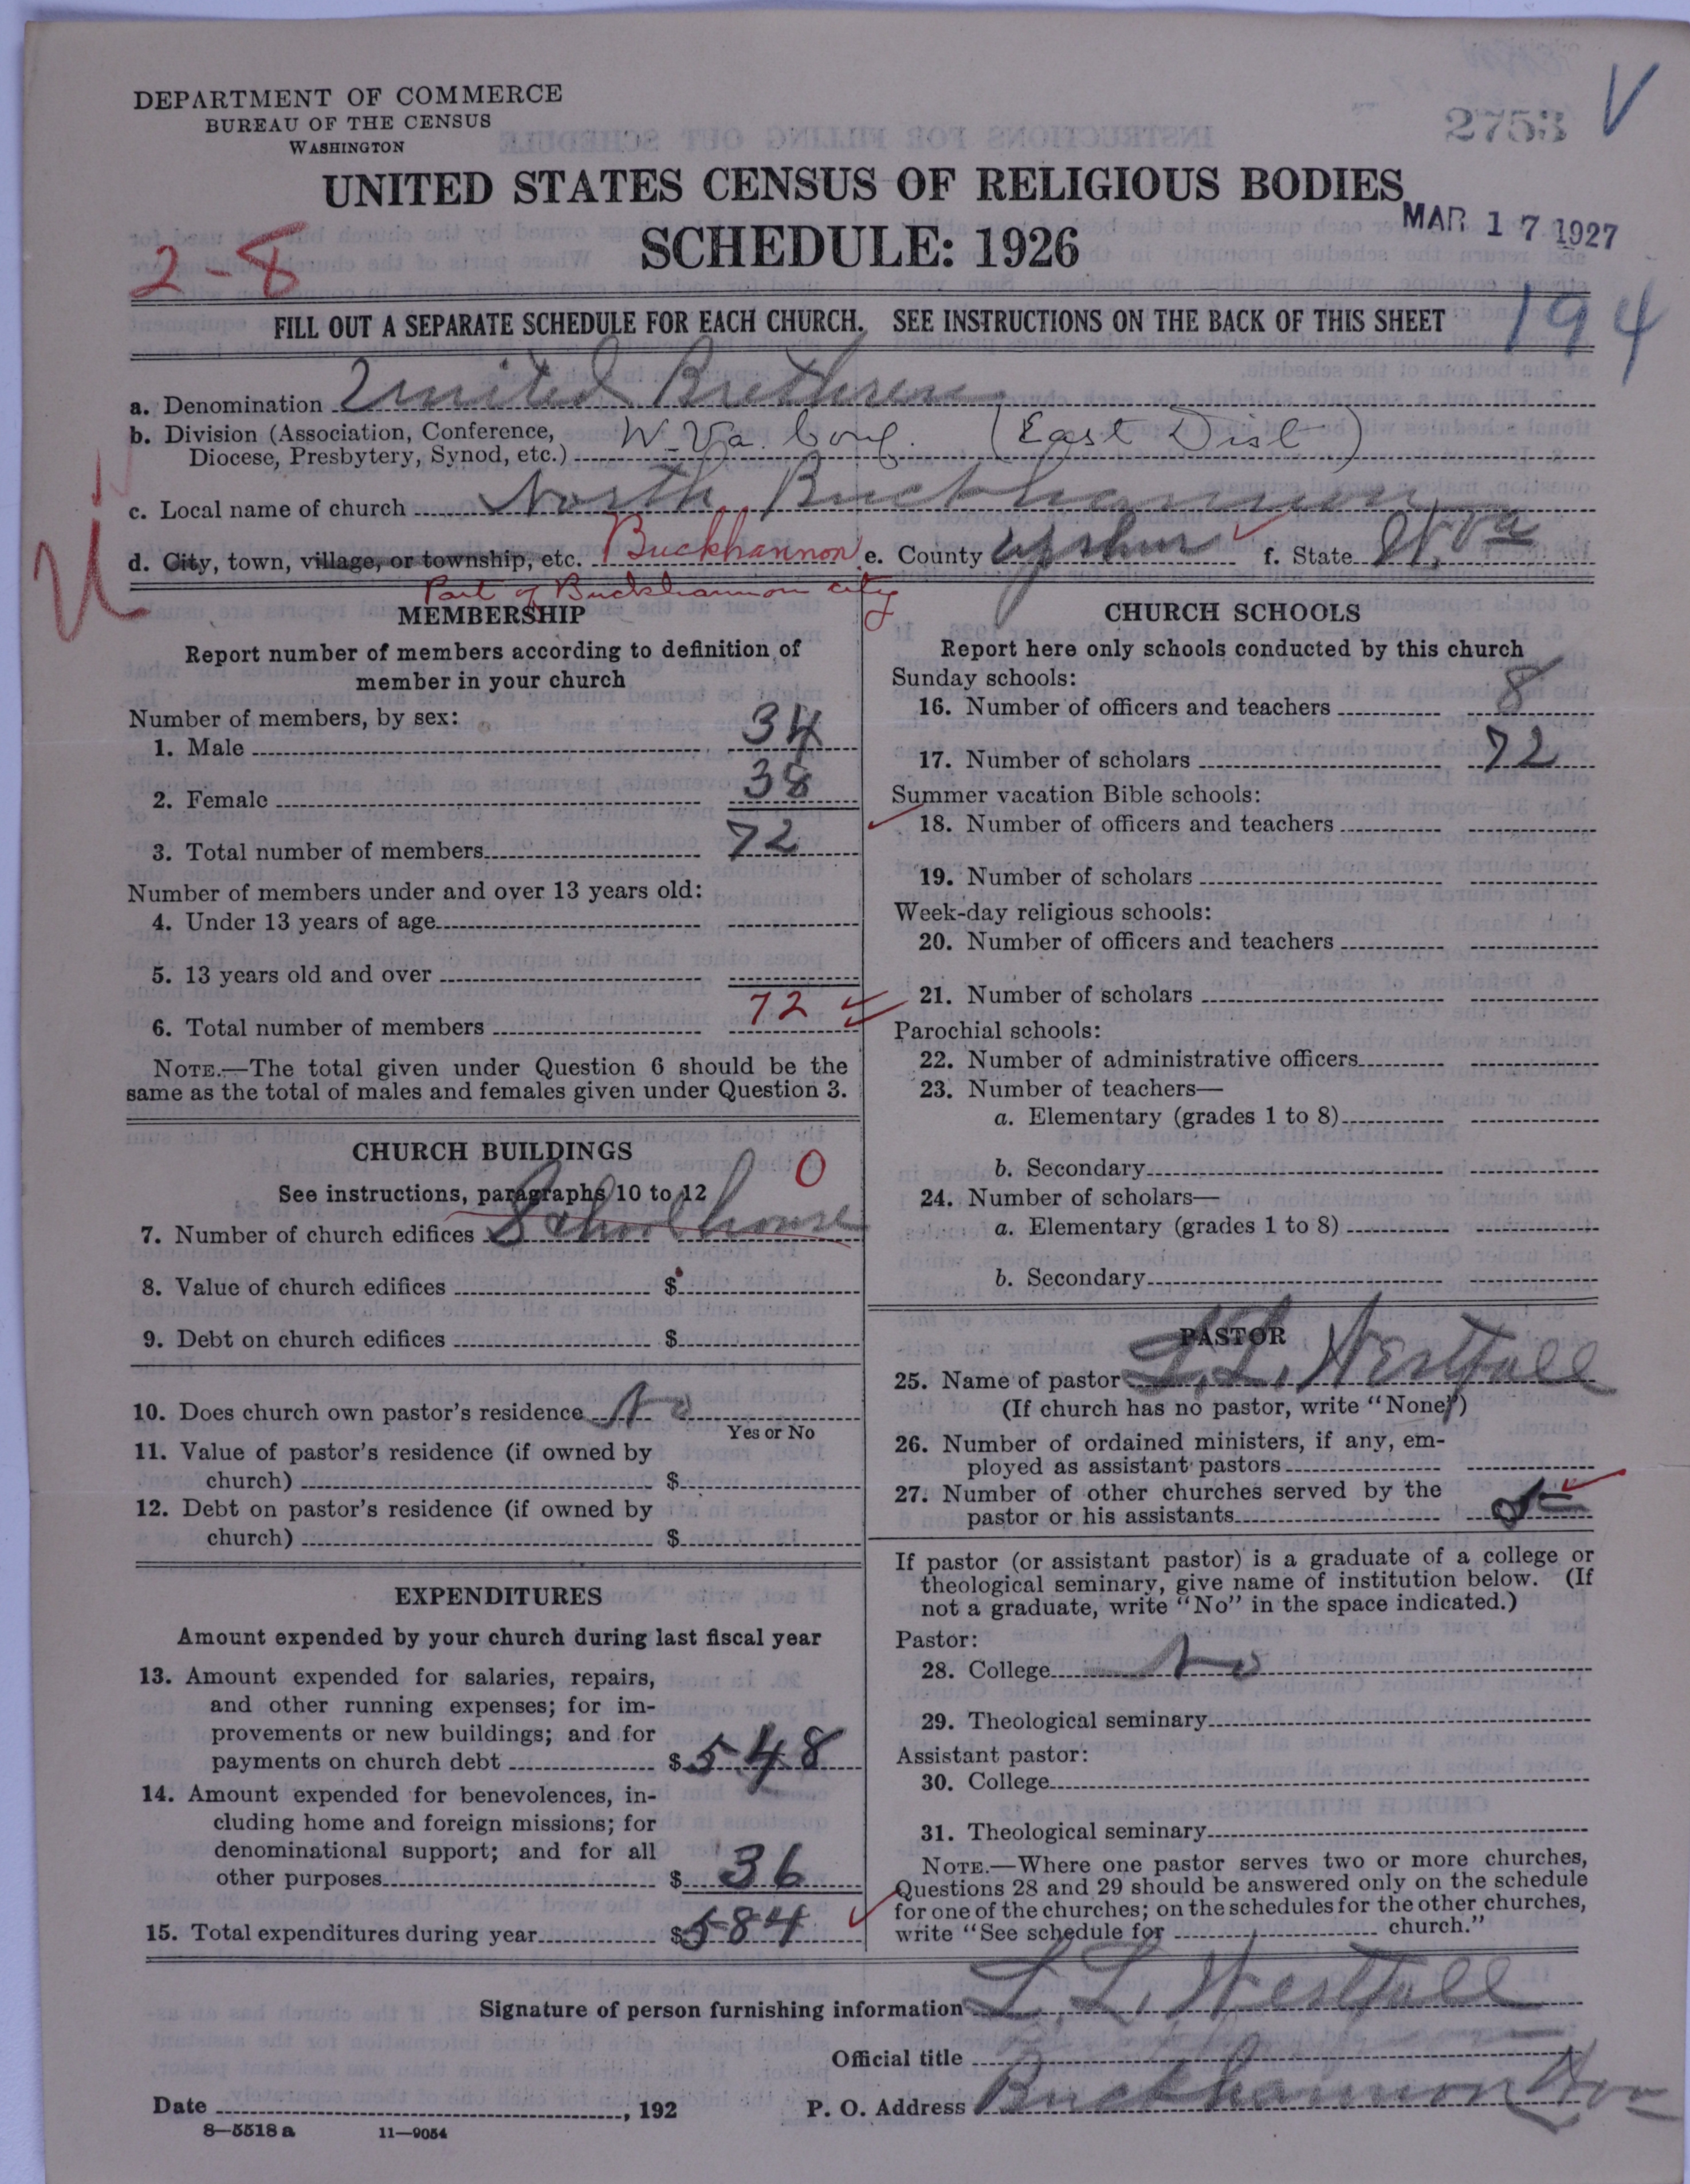 DEPARTMENT OF COMMERCE
BUREAU OF THE CENSUS
WASHINGTON
2753 V
UNITED STATES CENSUS OF RELIGIOUS BODIES
MAR 17 1927
SCHEDULE: 1926
2-8
194
FILL OUT A SEPARATE SCHEDULE FOR EACH CHURCH. SEE INSTRUCTIONS ON THE BACK OF THIS SHEET
a. Denomination United Brethren
b. Division (Association, Conference, W. Va. Conf. (East Dist)
Diocese, Presbytery, Synod, etc.)
c. Local name of church North Buckhannon
d. City, town, village, or township, etc. Buckhannon e. County Upshur f. State W. Va
Part of Buckhannon city
MEMBERSHIP
Report number of members according to definition of
member in your church
Number of members, by sex:
1. Male 34
2. Female 38
3. Total number of members 72
Number of members under and over 13 years old:
4. Under 13 years of age
5. 13 years old and over
6. Total number of members 72
NOTE.—The total given under Question 6 should be the
same as the total of males and females given under Question 3.
CHURCH BUILDINGS
See instructions, paragraphs 10 to 12 0
7. Number of church edifices School house
8. Value of church edifices $
9. Debt on church edifices $
10. Does church own pastor's residence No
Yes or No
11. Value of pastor's residence (if owned by
church) $
12. Debt on pastor's residence (if owned by
church) $
EXPENDITURES
Amount expended by your church during last fiscal year
13. Amount expended for salaries, repairs,
and other running expenses; for im-
provements or new buildings; and for
payments on church debt $ 548
14. Amount expended for benevolences, in-
cluding home and foreign missions; for
denominational support; and for all
other purposes $ 36
15. Total expenditures during year $ 584
CHURCH SCHOOLS
Report here only schools conducted by this church
Sunday schools:
16. Number of officers and teachers 8
17. Number of scholars 72
Summer vacation Bible schools:
18. Number of officers and teachers
19. Number of scholars
Week-day religious schools:
20. Number of officers and teachers
21. Number of scholars
Parochial schools:
22. Number of administrative officers
23. Number of teachers—
a. Elementary (grades 1 to 8)
b. Secondary
24. Number of scholars—
a. Elementary (grades 1 to 8)
b. Secondary
PASTOR
25. Name of pastor L. L. Westfall
(If church has no pastor, write "None")
26. Number of ordained ministers, if any, em-
ployed as assistant pastors
27. Number of other churches served by the
pastor or his assistants
If pastor (or assistant pastor) is a graduate of a college or
theological seminary, give name of institution below. (If
not a graduate, write "No" in the space indicated.)
Pastor:
28. College No
29. Theological seminary
Assistant pastor:
30. College
31. Theological seminary
NOTE.—Where one pastor serves two or more churches,
Questions 28 and 29 should be answered only on the schedule
for one of the churches; on the schedules for the other churches,
write "See schedule for church."
Signature of person furnishing information L. L. Westfall
Official title
Date , 192
P. O. Address Buckhannon W Va
8—5518 a 11—9054